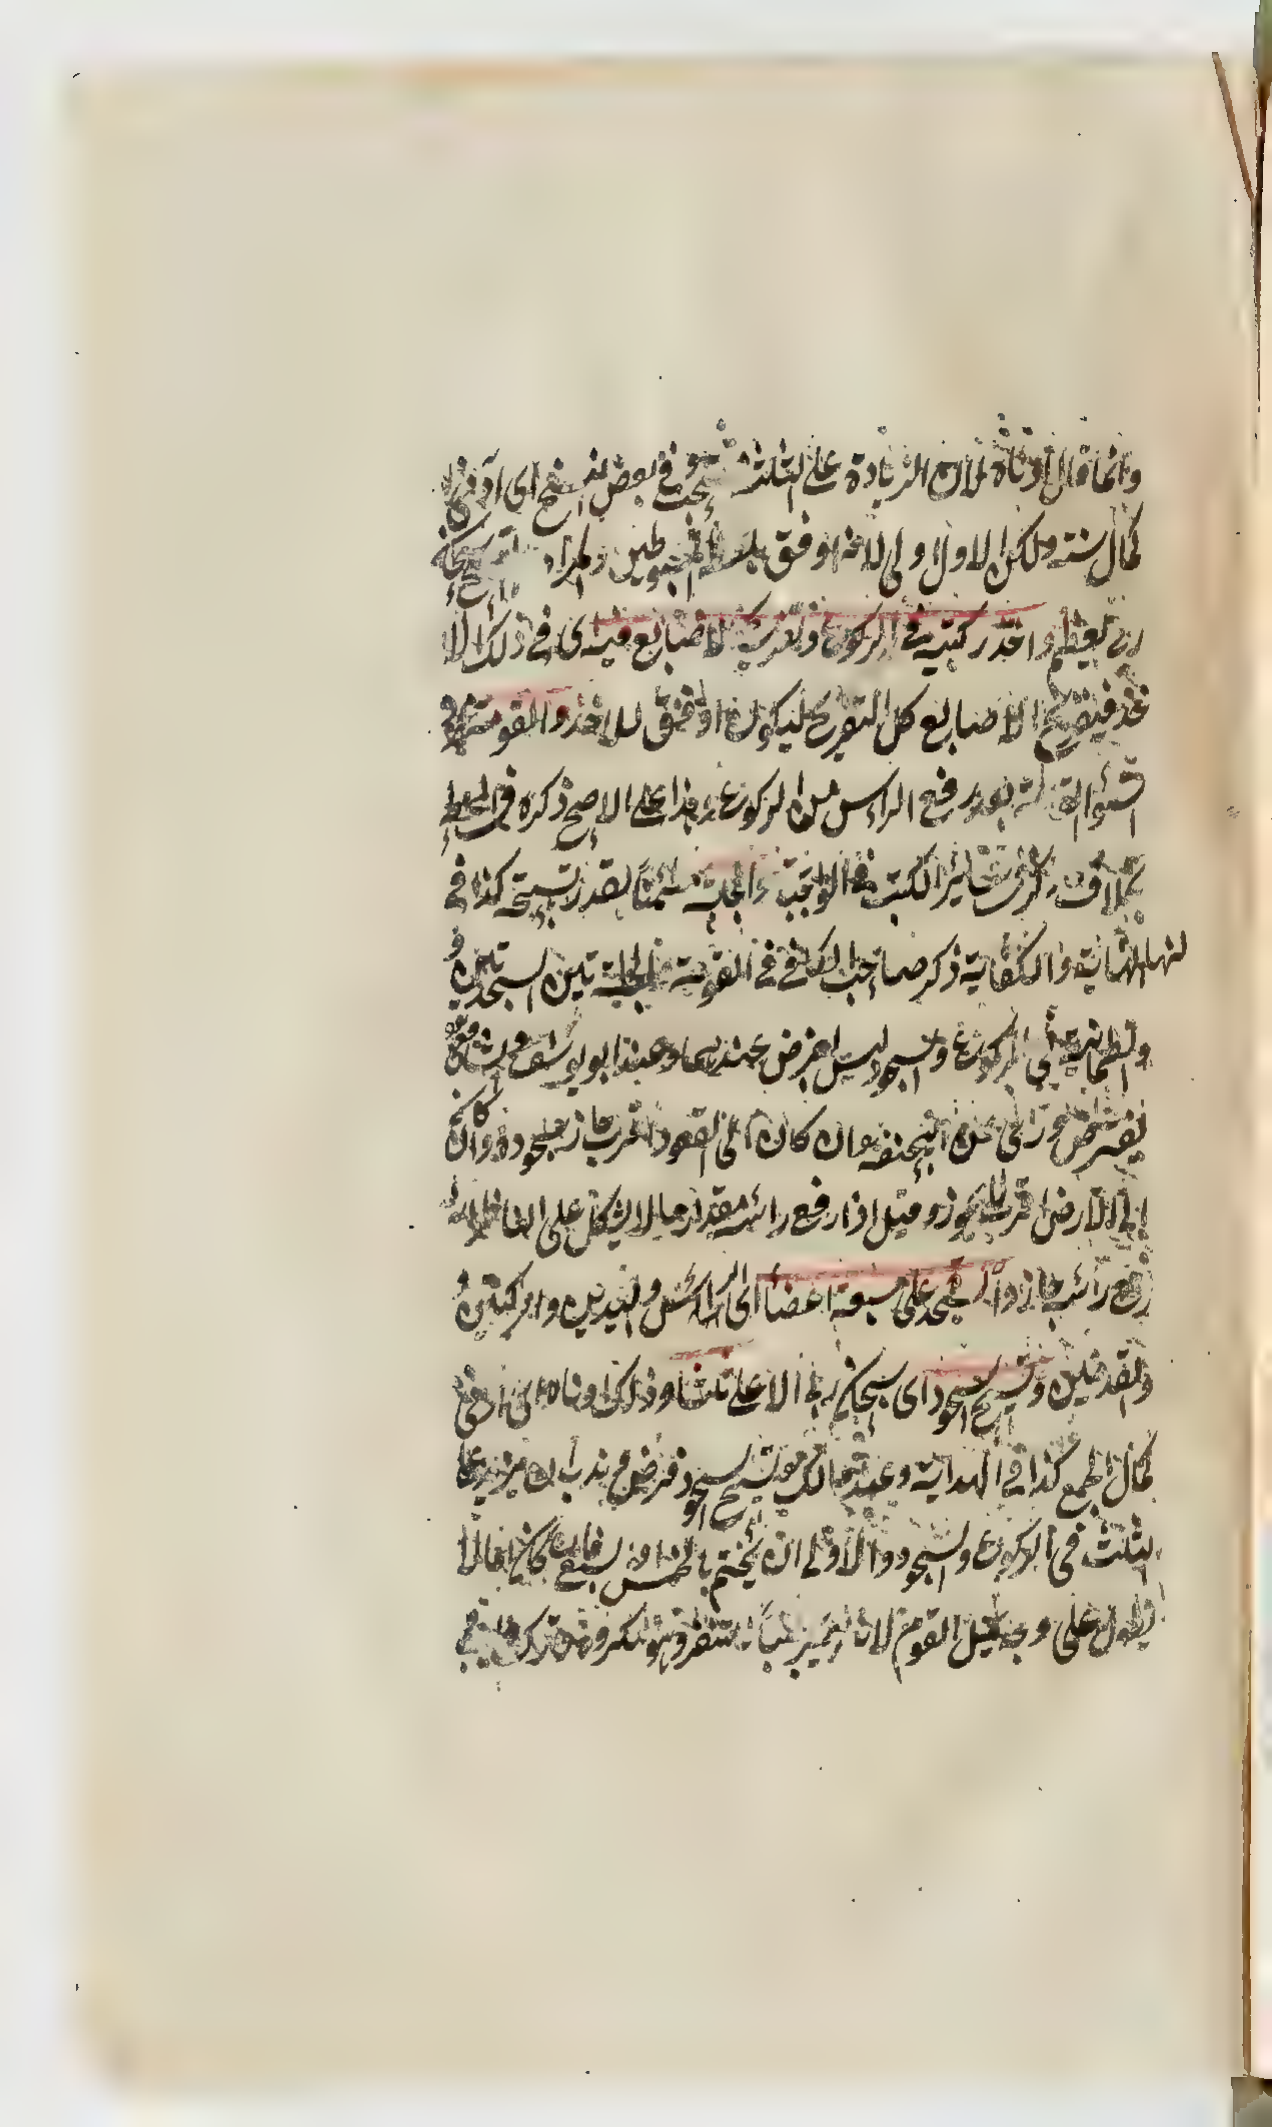 وانما قال ادناه لان الزيادة على الثلث يستحب وفى بعض النسخ اى ادنى
كمال سنته ولكن الاول اولى لانه اوفق بلفظ المبسوطين والمراد
ربى العظيم واخذ ركبتيه فى الركوع وتفريج الاصابع فيه اى فى ذلك الا
خذ فيفرج الاصابع كل التفريج ليكون اوفق للاخذ والقومة
بعد رفع الراس من الركوع وهذا على الاصح ذكره فى المحيط
بخلاف سائر الكتب الواجب والجلسة مطمئنا بقدر تسبيحة كذا فى
النهاية والكفاية ذكر صاحب الكافى فى القومة والجلسة بين السجدتين و
والطمانية فى الركوع والسجود ليس بفرض عندهما وعند ابو يوسف والشافعى
يفترض روى عن ابيحنيفة ان كان الى القعود اقرب جاز سجوده وان كان
الى الارض اقرب لا يجوز وقيل اذا رفع راسه مقدار ما لا يشكل على الناظر انه
رفع راسه جاز والسجدة على سبعة اعضاء اى الراس واليدين والركبتين و
والقدمين وتسبيح السجود اى سبحان ربى الاعلى ثلثا وذلك ادناه اى ادنى
كمال الجمع كذا فى الهداية وعند مالك تسبيح السجود فرض وندب ان يزيد على
الثلث فى الركوع والسجود والاولى ان يختم بالخمس او السبع كان اماما لا
يطول على وجه يمل القوم لانه يصير سببا للتنفر وهو مكروه